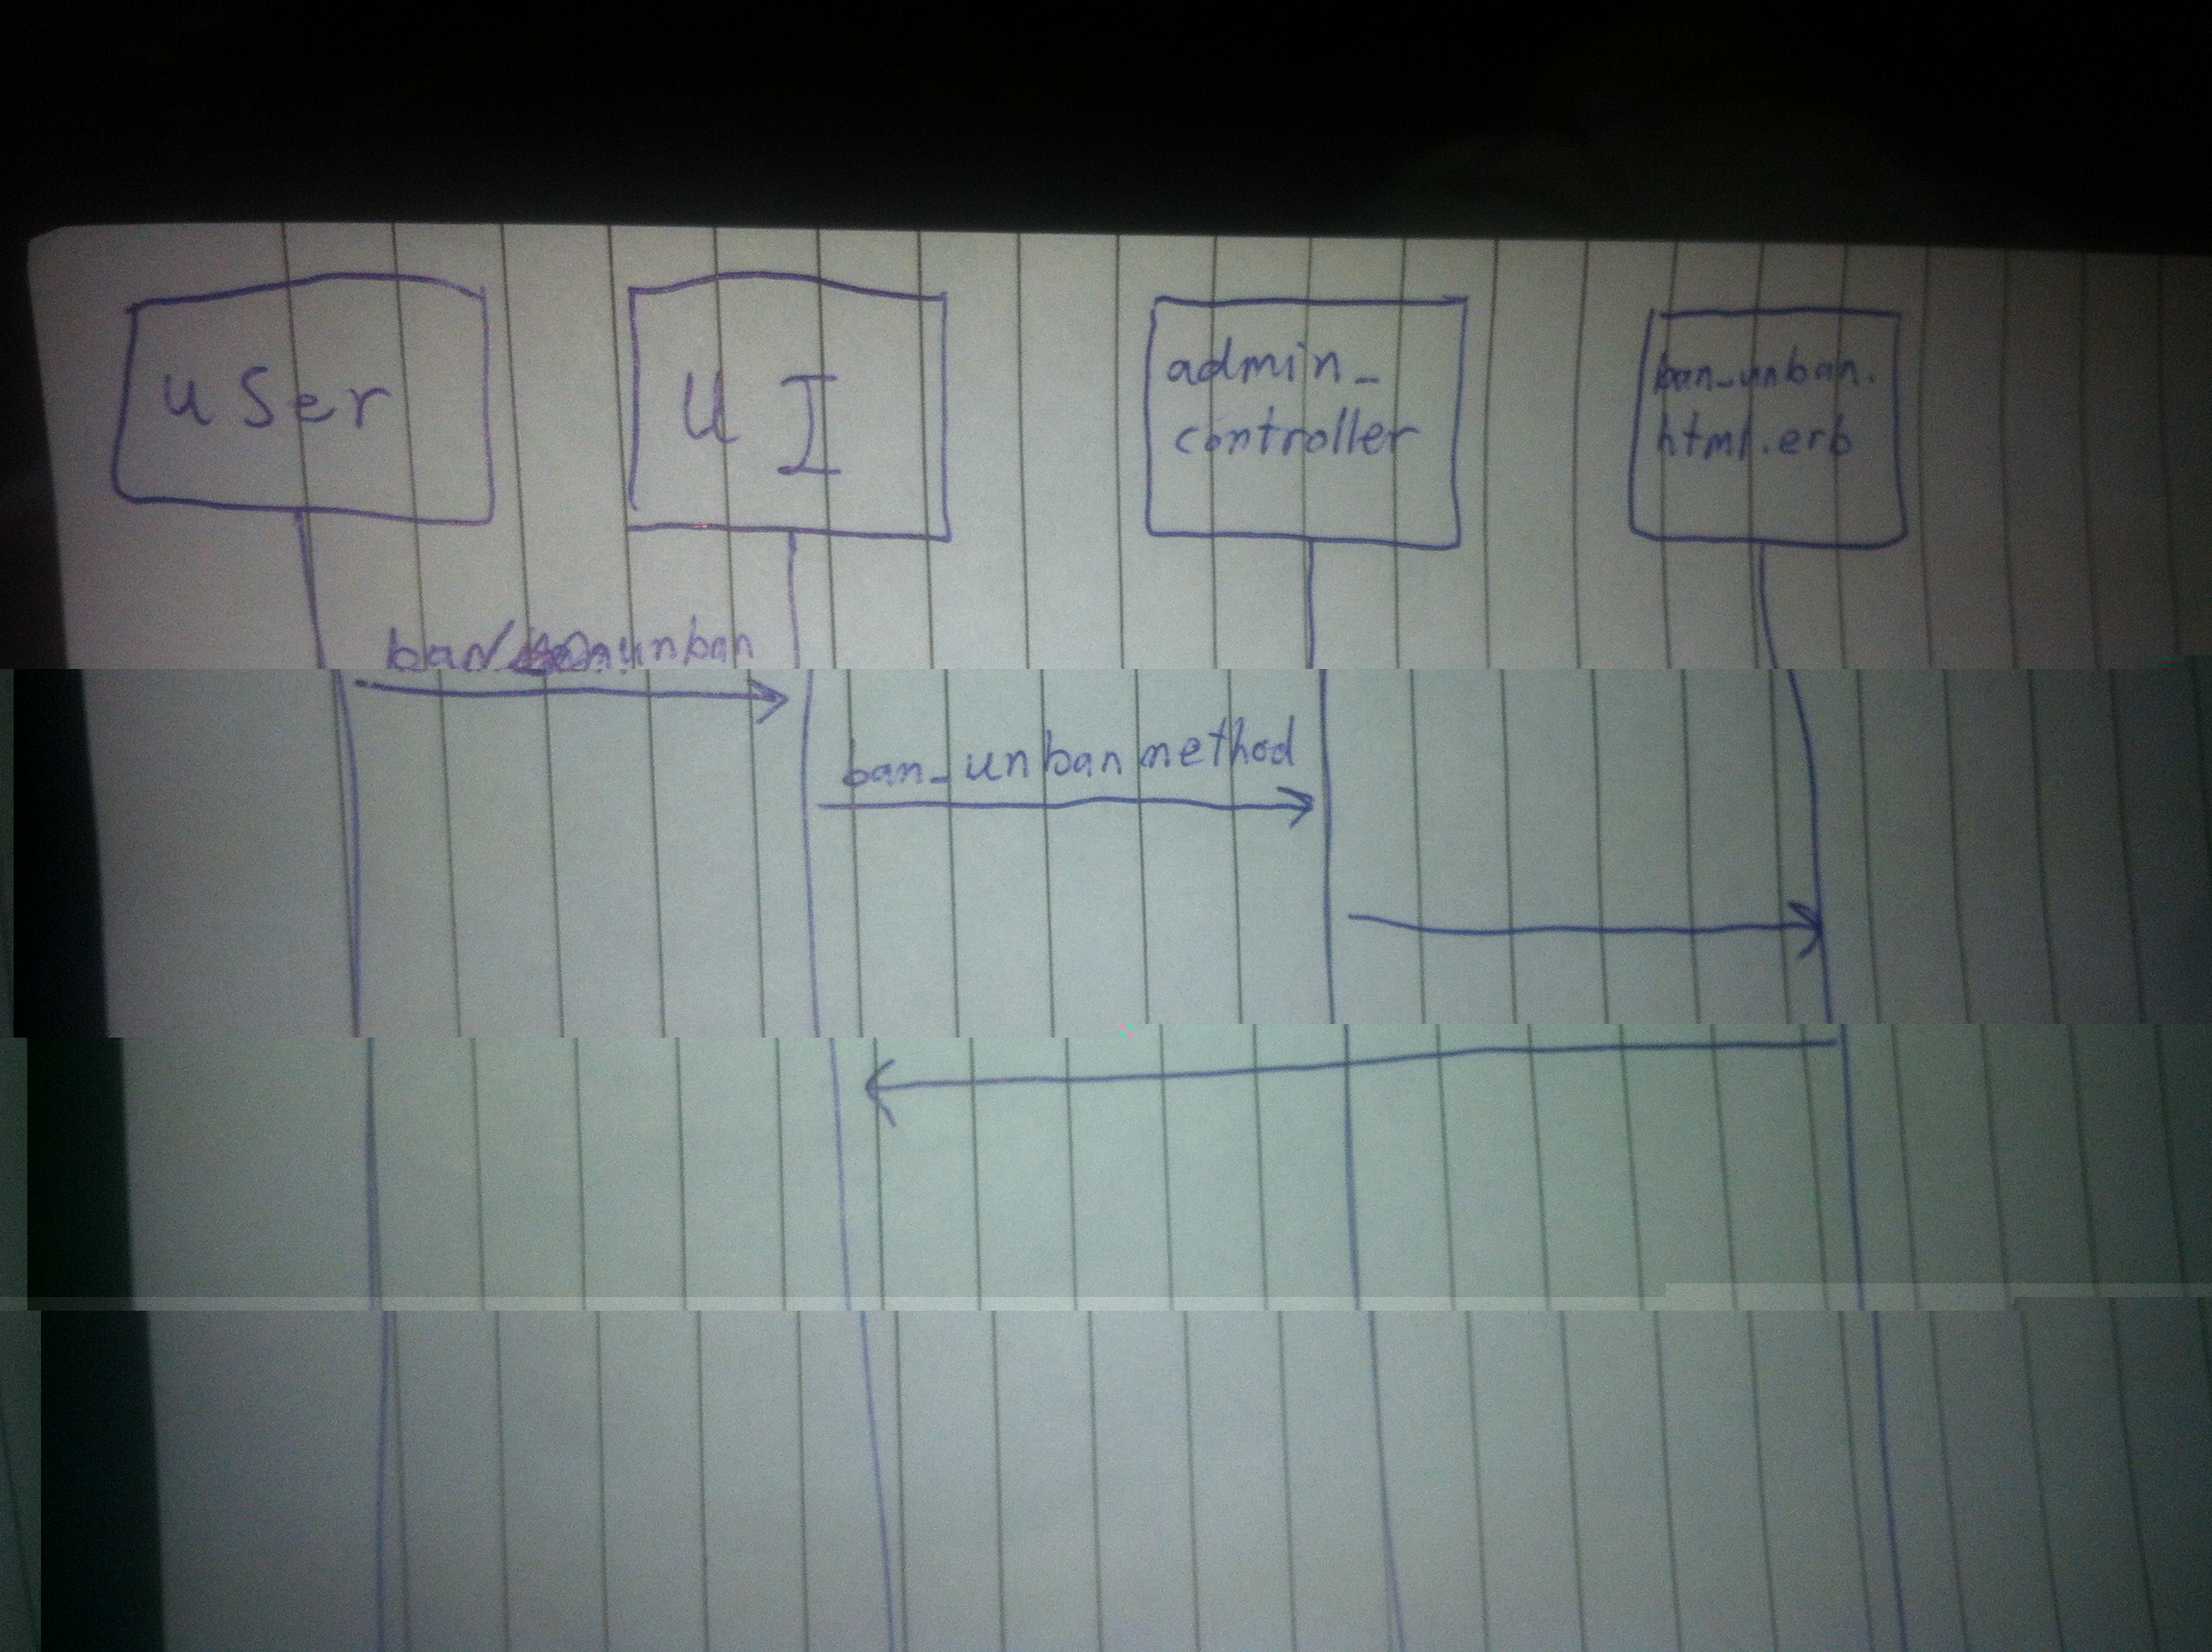 user
UI
admin_
controller
ban_unban.
html.erb
ban/unban
ban_unban method